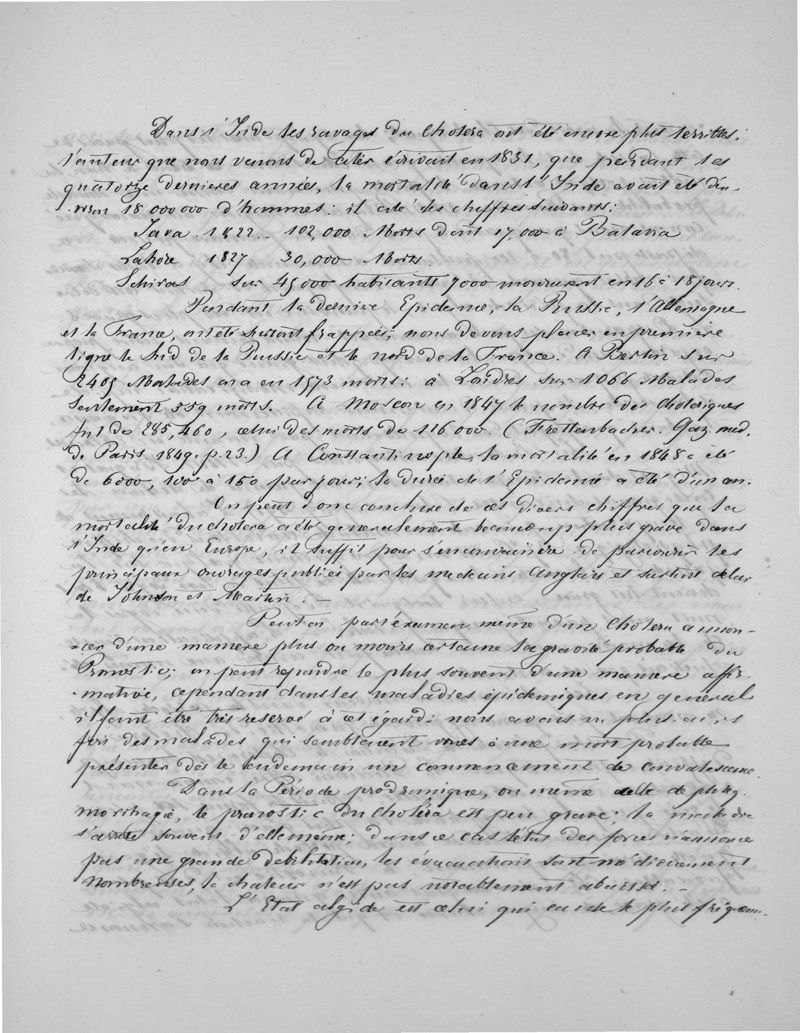 Dans l'Inde les ravages du Cholera ont été encore plus terribles:
l'auteur que nous venons de citer écrivait en 1831, que pendant les
quatorze dernieres années, la mortalité dans l'Inde avait été d'en-
-viron 18 000 000 d'hommes: il cite des chiffres suivants:
Java 1822 102,000 Morts dont 17,000 à Batavia
Lahore 1827 30,000 Morts.
Schiras sur 45000 habitants 7000 moururent en 16 à 18 jours.
Pendant la derniere Epidemie, la Russie, l'Allemagne
et la France, ont été surtout frappées; nous devons placer en premiere
ligne le Sud de la Russie et le nord de la France. A Berlin sur
2405 Malades on a eu 1573 morts: à Londres sur 1066 Malades
seulement 559 morts. A Moscou en 1847 le nombre des choleriques
fut de 285,460, celui des morts de 116 000. (Frettenbacher. Gaz. med.
de Paris 1849. p. 23.) A Constantinople, la mortalité en 1848 a été
de 6000, 100 à 150 par jour; la durée de l'Epidemie a été d'un an.
On peut donc conclure de ces divers chiffres que la
mortalité du cholera a été generalement beaucoup plus grave dans
l'Inde qu'en Europe, il suffit pour s'en convaincre de parcourir les
principaux ouvrages publiés par les medecins Anglais et surtout celui
de Johnson et Martin. —
Peut on par l'examen même d'un Cholera annon-
-cer d'une maniere plus ou moins certaine la gravité probable du
Pronostic; on peut repondre le plus souvent d'une maniere affir-
-mative, cependant dans les maladies épidemiques en general
il faut être très reservé à cet égard: nous avons vu plusieurs
fois des malades qui semblaient voués à une mort probable
présenter dès le lendemain un commencement de convalescence.
Dans la Période prodromique, ou même celle de phleg-
morrhagie, le pronostic du Cholera est peu grave; la maladie
s'arrete souvent d'elle même; dans ce cas l'état des forces n'annonce
pas une grande debilitation, les évacuations sont mediocrement
nombreuses, la chaleur n'est pas notablement abaissée. —
L'Etat algide est celui qui cause le plus